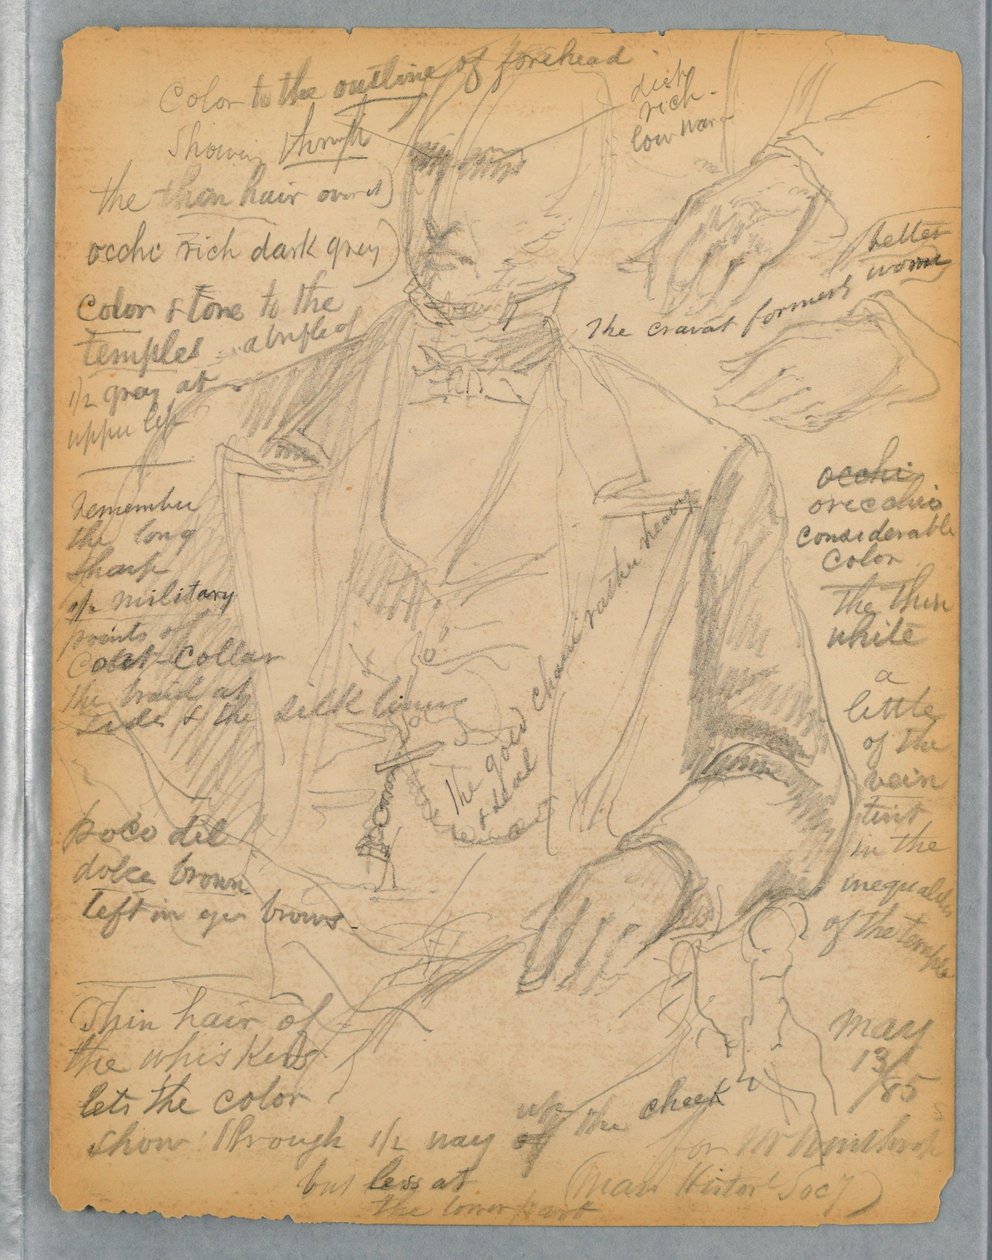 Color to the outline of forehead
Showing through
the thin hair over it)
occhi rich dark grey)
Color & tone to the
temples a trifle of
1/2 gray at
upper left
diety
rich -
low warm
better
The cravat formerly worn
remember
the long
sharp
1/2 military
points of
Coat-Collar
the braid at
side & the silk lining
The gold chain rather heavy
& seal
occhi
orecchio
considerable
color
The thin
white
a
little
of the
vein
tint
in the
inequalities
of the temple
poco del
dolce brown
left in eye brows.
Thin hair of
the whiskers
lets the color
show through 1/2 way up the cheek
but less at
the lower part
May
13/85
for Mr Winthrop
(Mass Histor'l Soc'y)